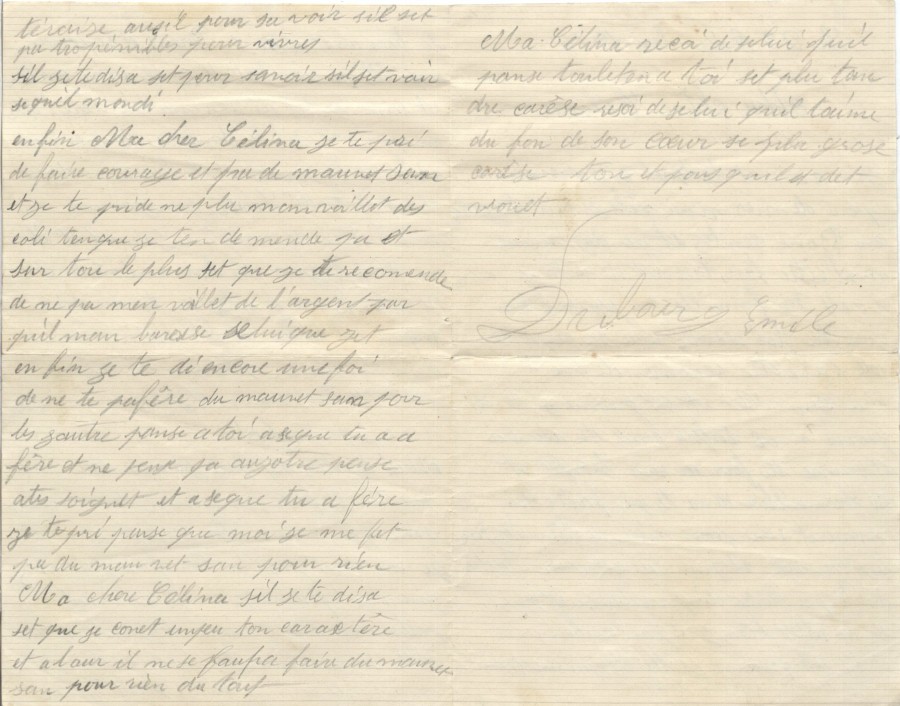 téraise ausil pour sa voir sil set
pa tro pénibles pour vivres
sil se te disa set pour savoir sil set voir
se quil mondi
enfin Ma cher Célina ge te pri
de faire courage et pa de mauvet san
et ge te pri de ne plu manvoillet des
coli tenque ge ten de mende pa et
sur tou le plus set que ge te recomende
de ne pa men voillet de l'argent par
quil man baresse selui que get
en fin ge te di encore une foi
de ne te pa fére du mauvet san pour
les zautre panse a toi a seque tu a a
fére et ne panse pa auzotre pense
a tes soignet et a seque tu a fére
ge te pri panse que moi se me fet
pa du mau vet san pour rien
Ma chere Célina sil se te disa
set que ge conet un peu ton caractère
et a laur il ne se faupa faire du mauvet
san pour rien du tout
Ma Célina reçoi de selui quil
panse touletan a toi set plu tan
dre carèse resoi de selui quil t'aime
du fon de son cœur se plu grose
carèse ton et pous quil et det
vouet
Dubourg Emile